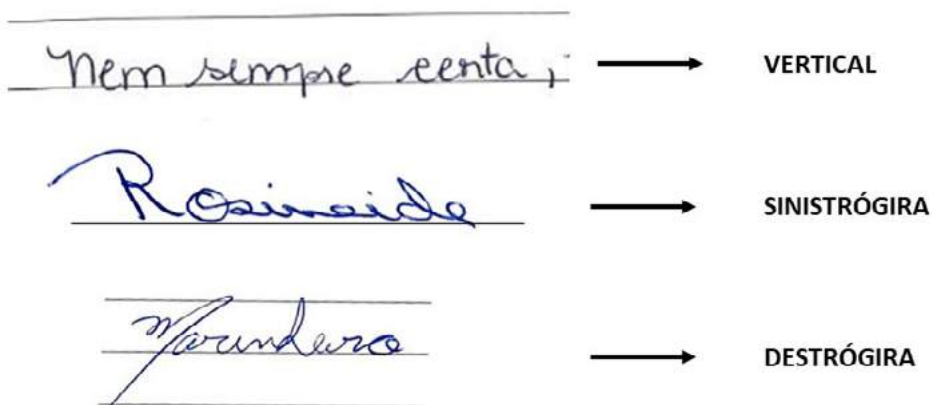 Nem sempre certa, VERTICAL
Rosineide SINISTRÓGIRA
DESTRÓGIRA